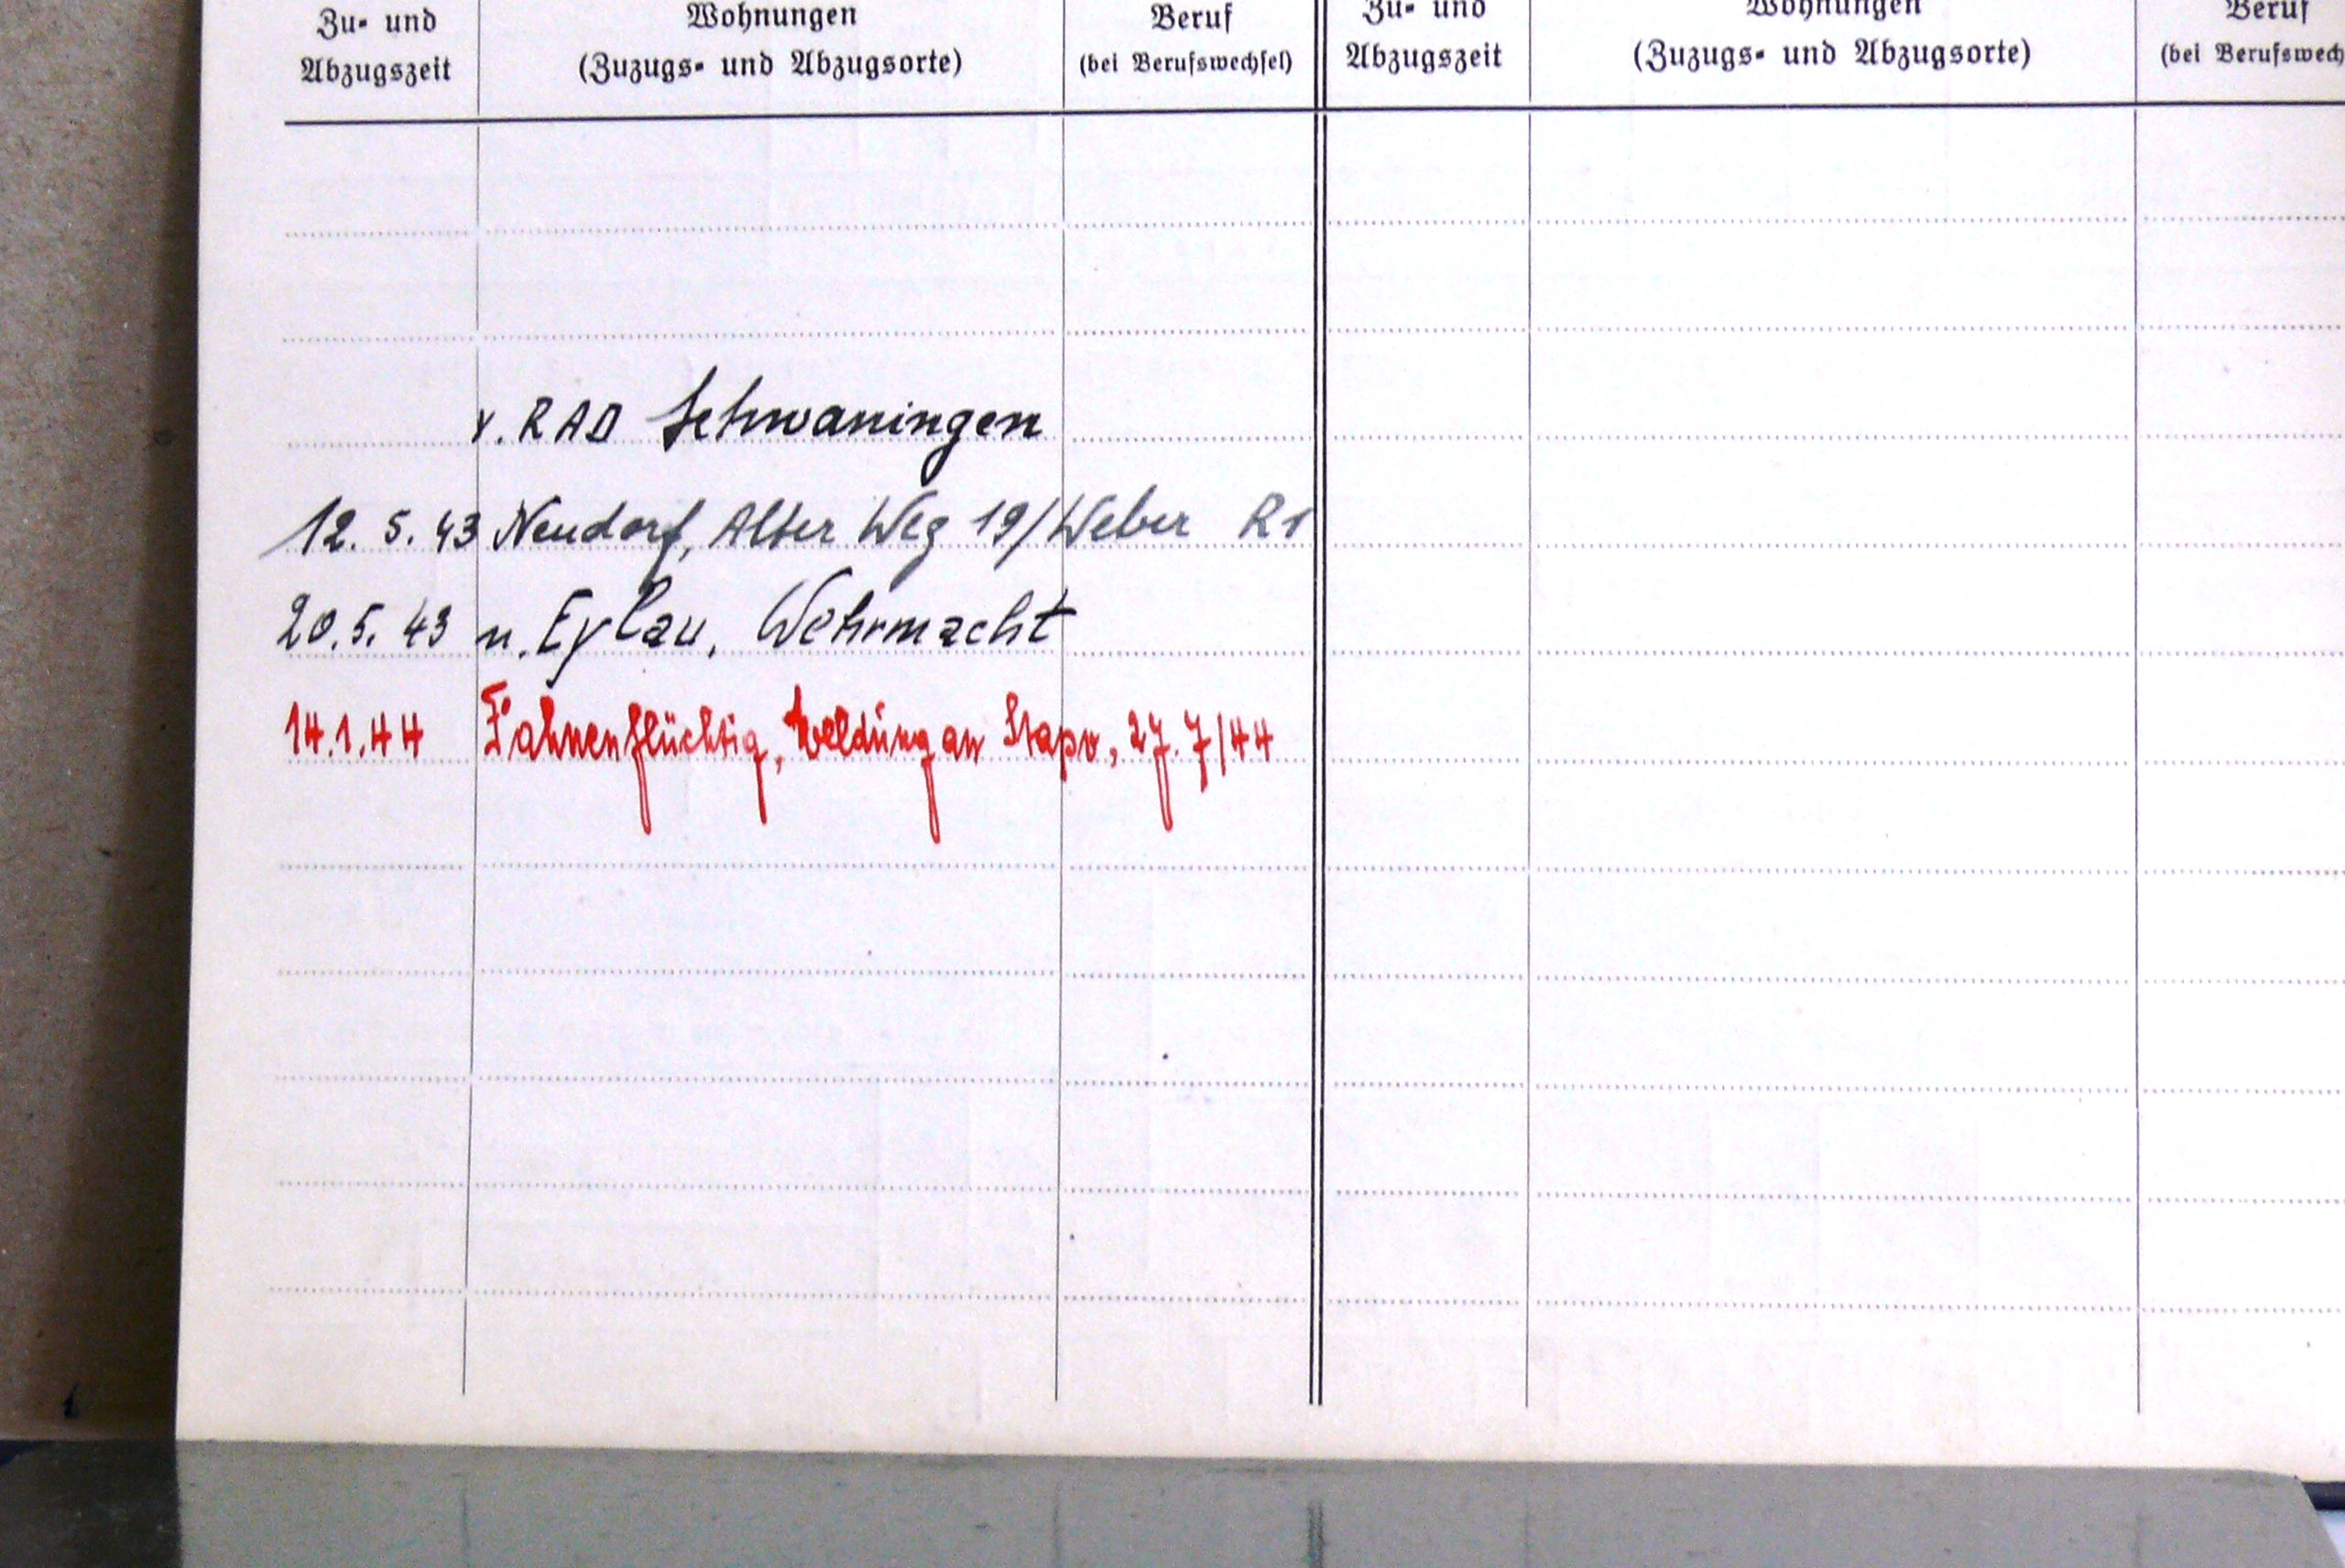 Zu- und Wohnungen Beruf Zu- und Wohnungen Beruf
Abzugszeit (Zuzugs- und Abzugsorte) (bei Berufswechsel) Abzugszeit (Zuzugs- und Abzugsorte) (bei Berufswech
v. RAD Schwaningen
12. 5. 43 Neudorf, Alter Weg 19/Weber R1
20. 5. 43 n. Eylau, Wehrmacht
14.1.44 Fahnenflüchtig, Meldung an Stapo, 27.7/44